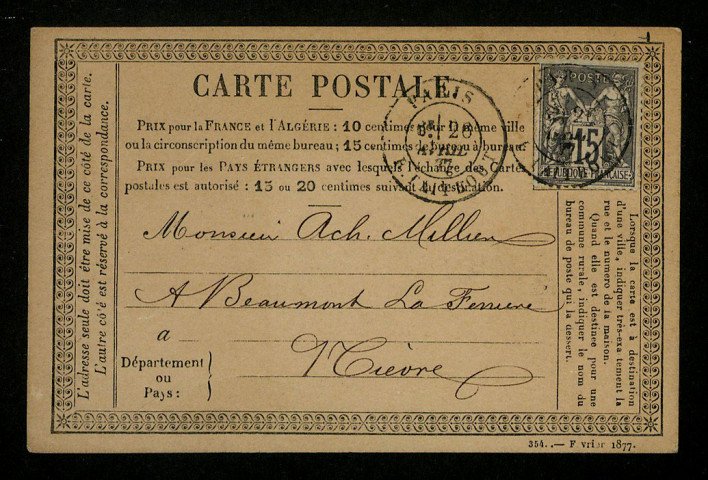 CARTE POSTALE
PRIX pour la FRANCE et l'ALGÉRIE : 10 centimes pour la même ville
ou la circonscription du même bureau ; 15 centimes de bureau à bureau.
PRIX pour les PAYS ÉTRANGERS avec lesquels l'échange des Cartes
postales est autorisé : 15 ou 20 centimes suivant la destination.
Monsieur Ach. Millien
A Beaumont La Ferrière
a
Nièvre
Département
ou
Pays :
L'adresse seule doit être mise de ce côté de la carte.
L'autre côté est réservé à la correspondance.
Lorsque la carte est à destination
d'une ville, indiquer très-exactement la
rue et le numero de la maison.
Quand elle est destinée pour une
commune rurale, indiquer le nom du
bureau de poste qui la dessert.
PARIS
28
AVRIL
77
POSTE
15
REPUBLIQUE FRANÇAISE
354. .— F vrier 1877.